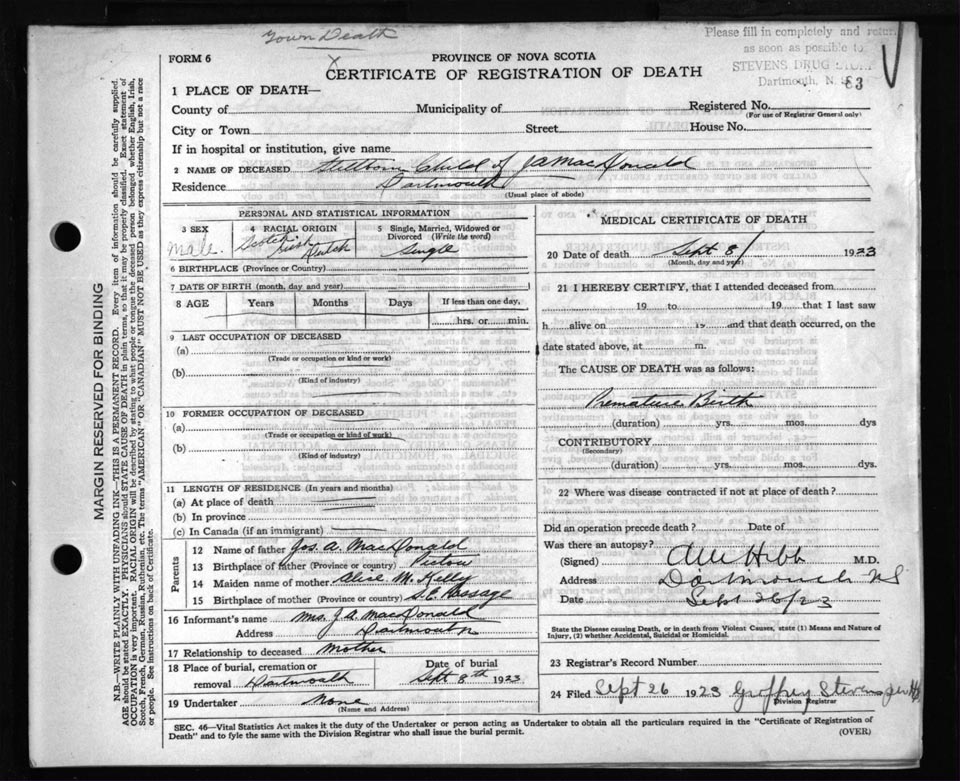 Town Death
Please fill in completely and return
as soon as possible to
STEVENS DRUG STORE
Dartmouth, N. S.
83
FORM 6
PROVINCE OF NOVA SCOTIA
CERTIFICATE OF REGISTRATION OF DEATH
1 PLACE OF DEATH—
County of Municipality of Registered No.
(For use of Registrar General only)
City or Town Street House No.
If in hospital or institution, give name
2 NAME OF DECEASED Stillborn Child of J A MacDonald
Residence Dartmouth
(Usual place of abode)
PERSONAL AND STATISTICAL INFORMATION
3 SEX 4 RACIAL ORIGIN 5 Single, Married, Widowed or Divorced (Write the word)
male. Scotch Irish Dutch Single
6 BIRTHPLACE (Province or Country)
7 DATE OF BIRTH (month, day and year)
8 AGE Years Months Days If less than one day,
hrs. or min.
9 LAST OCCUPATION OF DECEASED
(a)
(Trade or occupation or kind or work)
(b)
(Kind of industry)
10 FORMER OCCUPATION OF DECEASED
(a)
(Trade or occupation or kind of work)
(b)
(Kind of industry)
11 LENGTH OF RESIDENCE (In years and months)
(a) At place of death
(b) In province
(c) In Canada (if an immigrant)
Parents
12 Name of father Jos. A. MacDonald
13 Birthplace of father (Province or country) Pictou
14 Maiden name of mother Alice M. Kelly
15 Birthplace of mother (Province or country) S.E. Passage
16 Informant's name Mrs. J. A. MacDonald
Address Dartmouth
17 Relationship to deceased Mother
18 Place of burial, cremation or removal Dartmouth
Date of burial Sept 8th 1923
19 Undertaker None
(Name and Address)
MEDICAL CERTIFICATE OF DEATH
20 Date of death Sept 8/ 1923
(Month, day and year)
21 I HEREBY CERTIFY, that I attended deceased from
19 to 19 that I last saw
h alive on 19 and that death occurred, on
date stated above, at m.
The CAUSE OF DEATH was as follows:
Premature Birth
(duration) yrs. mos. dys
CONTRIBUTORY
(Secondary)
(duration) yrs. mos. dys.
22 Where was disease contracted if not at place of death?
Did an operation precede death? Date of
Was there an autopsy?
(Signed) M.D.
Address Dartmouth NS
Date Sept 26/23
State the Disease causing Death, or in death from Violent Causes, state (1) Means and Nature of
Injury, (2) whether Accidental, Suicidal or Homicidal.
23 Registrar's Record Number
24 Filed Sept 26 1923 Geoffrey Stevens
Division Registrar
SEC. 46—Vital Statistics Act makes it the duty of the Undertaker or person acting as Undertaker to obtain all the particulars required in the "Certificate of Registration of
Death" and to fyle the same with the Division Registrar who shall issue the burial permit. (OVER)
MARGIN RESERVED FOR BINDING
N.B.—WRITE PLAINLY WITH UNFADING INK—THIS IS A PERMANENT RECORD. Every item of information should be carefully supplied.
AGE should be stated EXACTLY. PHYSICIANS should STATE CAUSE OF DEATH in plain terms, so that it may be properly classified. Exact statement of
OCCUPATION is very important. RACIAL ORIGIN will be described by stating to what people or tongue the deceased person belonged whether English, Irish,
Scotch, French, German, Russian, Ruthenian, etc. The terms "AMERICAN" OR "CANADIAN" MUST NOT BE USED as they express citizenship but not a race
or people. See instructions on back of Certificate.